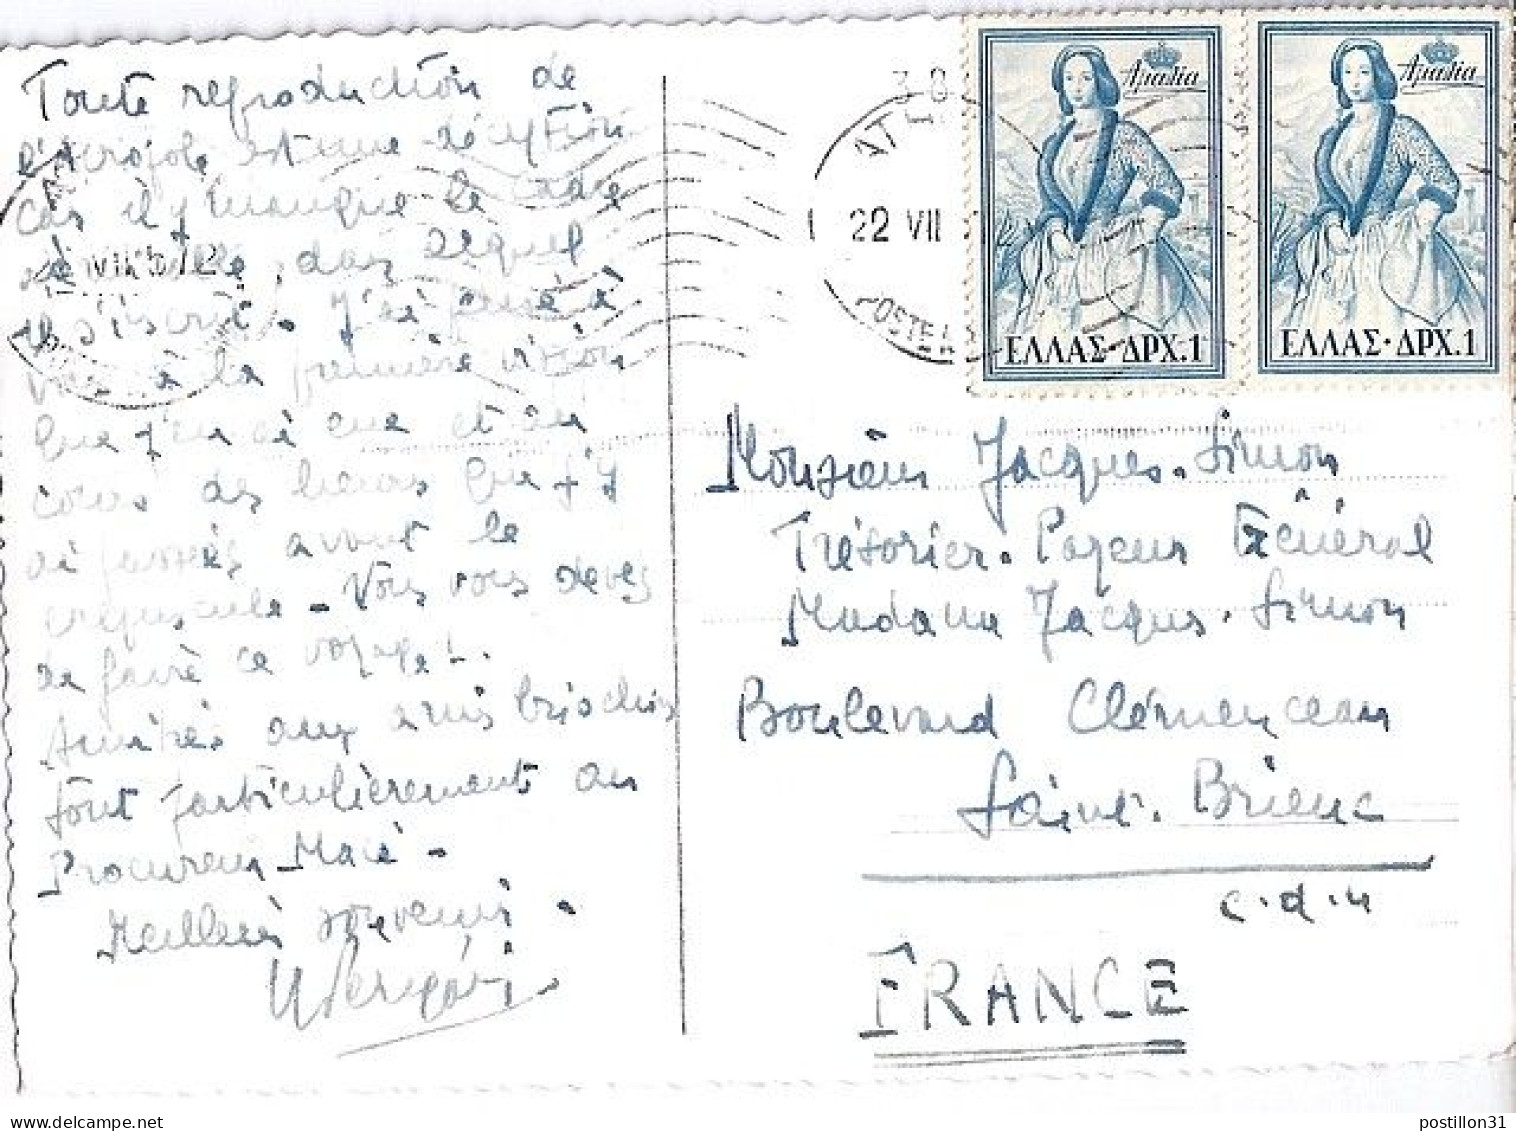 Toute reproduction de
l'Acropole est une déception
car il y manque le cadre
dans lequel
il s'inscrit. J'ai pensé à
vous à la première vision
que j'en ai eue et au
cours des heures que j'y
ai passées avant le
crépuscule - Vous vous devez
de faire ce voyage -.
Amitiés aux amis briochins
tout particulièrement au
Procureur
Meilleurs souvenirs -
22 VII
Αμαλία
ΕΛΛΑΣ·ΔΡΧ.1
Αμαλία
ΕΛΛΑΣ·ΔΡΧ.1
Monsieur Jacques. Simon
Trésorier. Payeur Général
Madame Jacques. Simon
Boulevard Clémenceau
Saint. Brieuc
c.d.n
FRANCE
postillon31